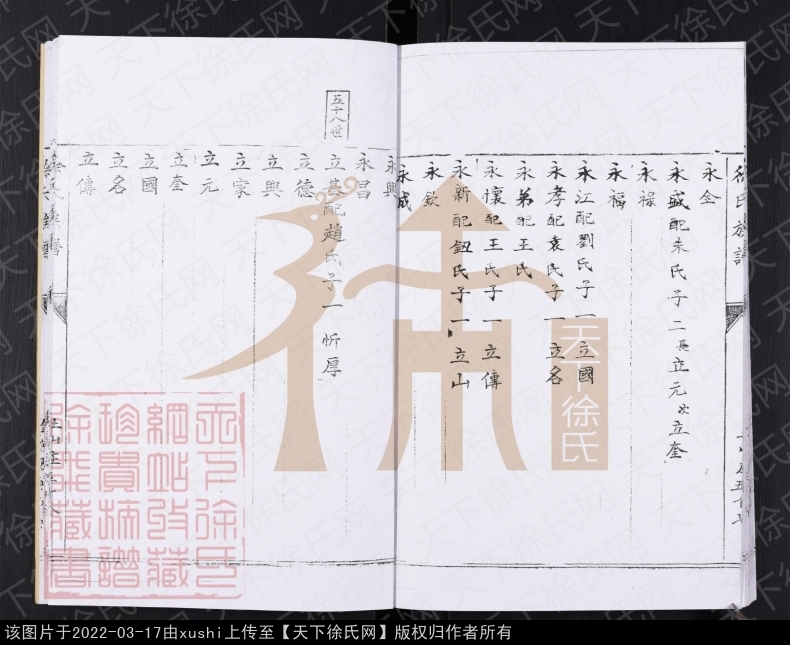 徐氏族譜
永全
永盛配朱氏子二長立元次立奎
永祿
永福
永江配劉氏子一立國
永孝配袁氏子一立名
永弟配王氏
永懷配王氏子一立傳
永新配鈕氏子一立山
永欽
永成
永興
永昌
五十八世
立基配趙氏子一忻厚
立德
立興
立家
立元
立奎
立國
立名
立傳
天下徐氏
天下徐氏
網站收藏
珍貴族譜
徐戰藏書
该图片于2022-03-17由xushi上传至【天下徐氏网】版权归作者所有